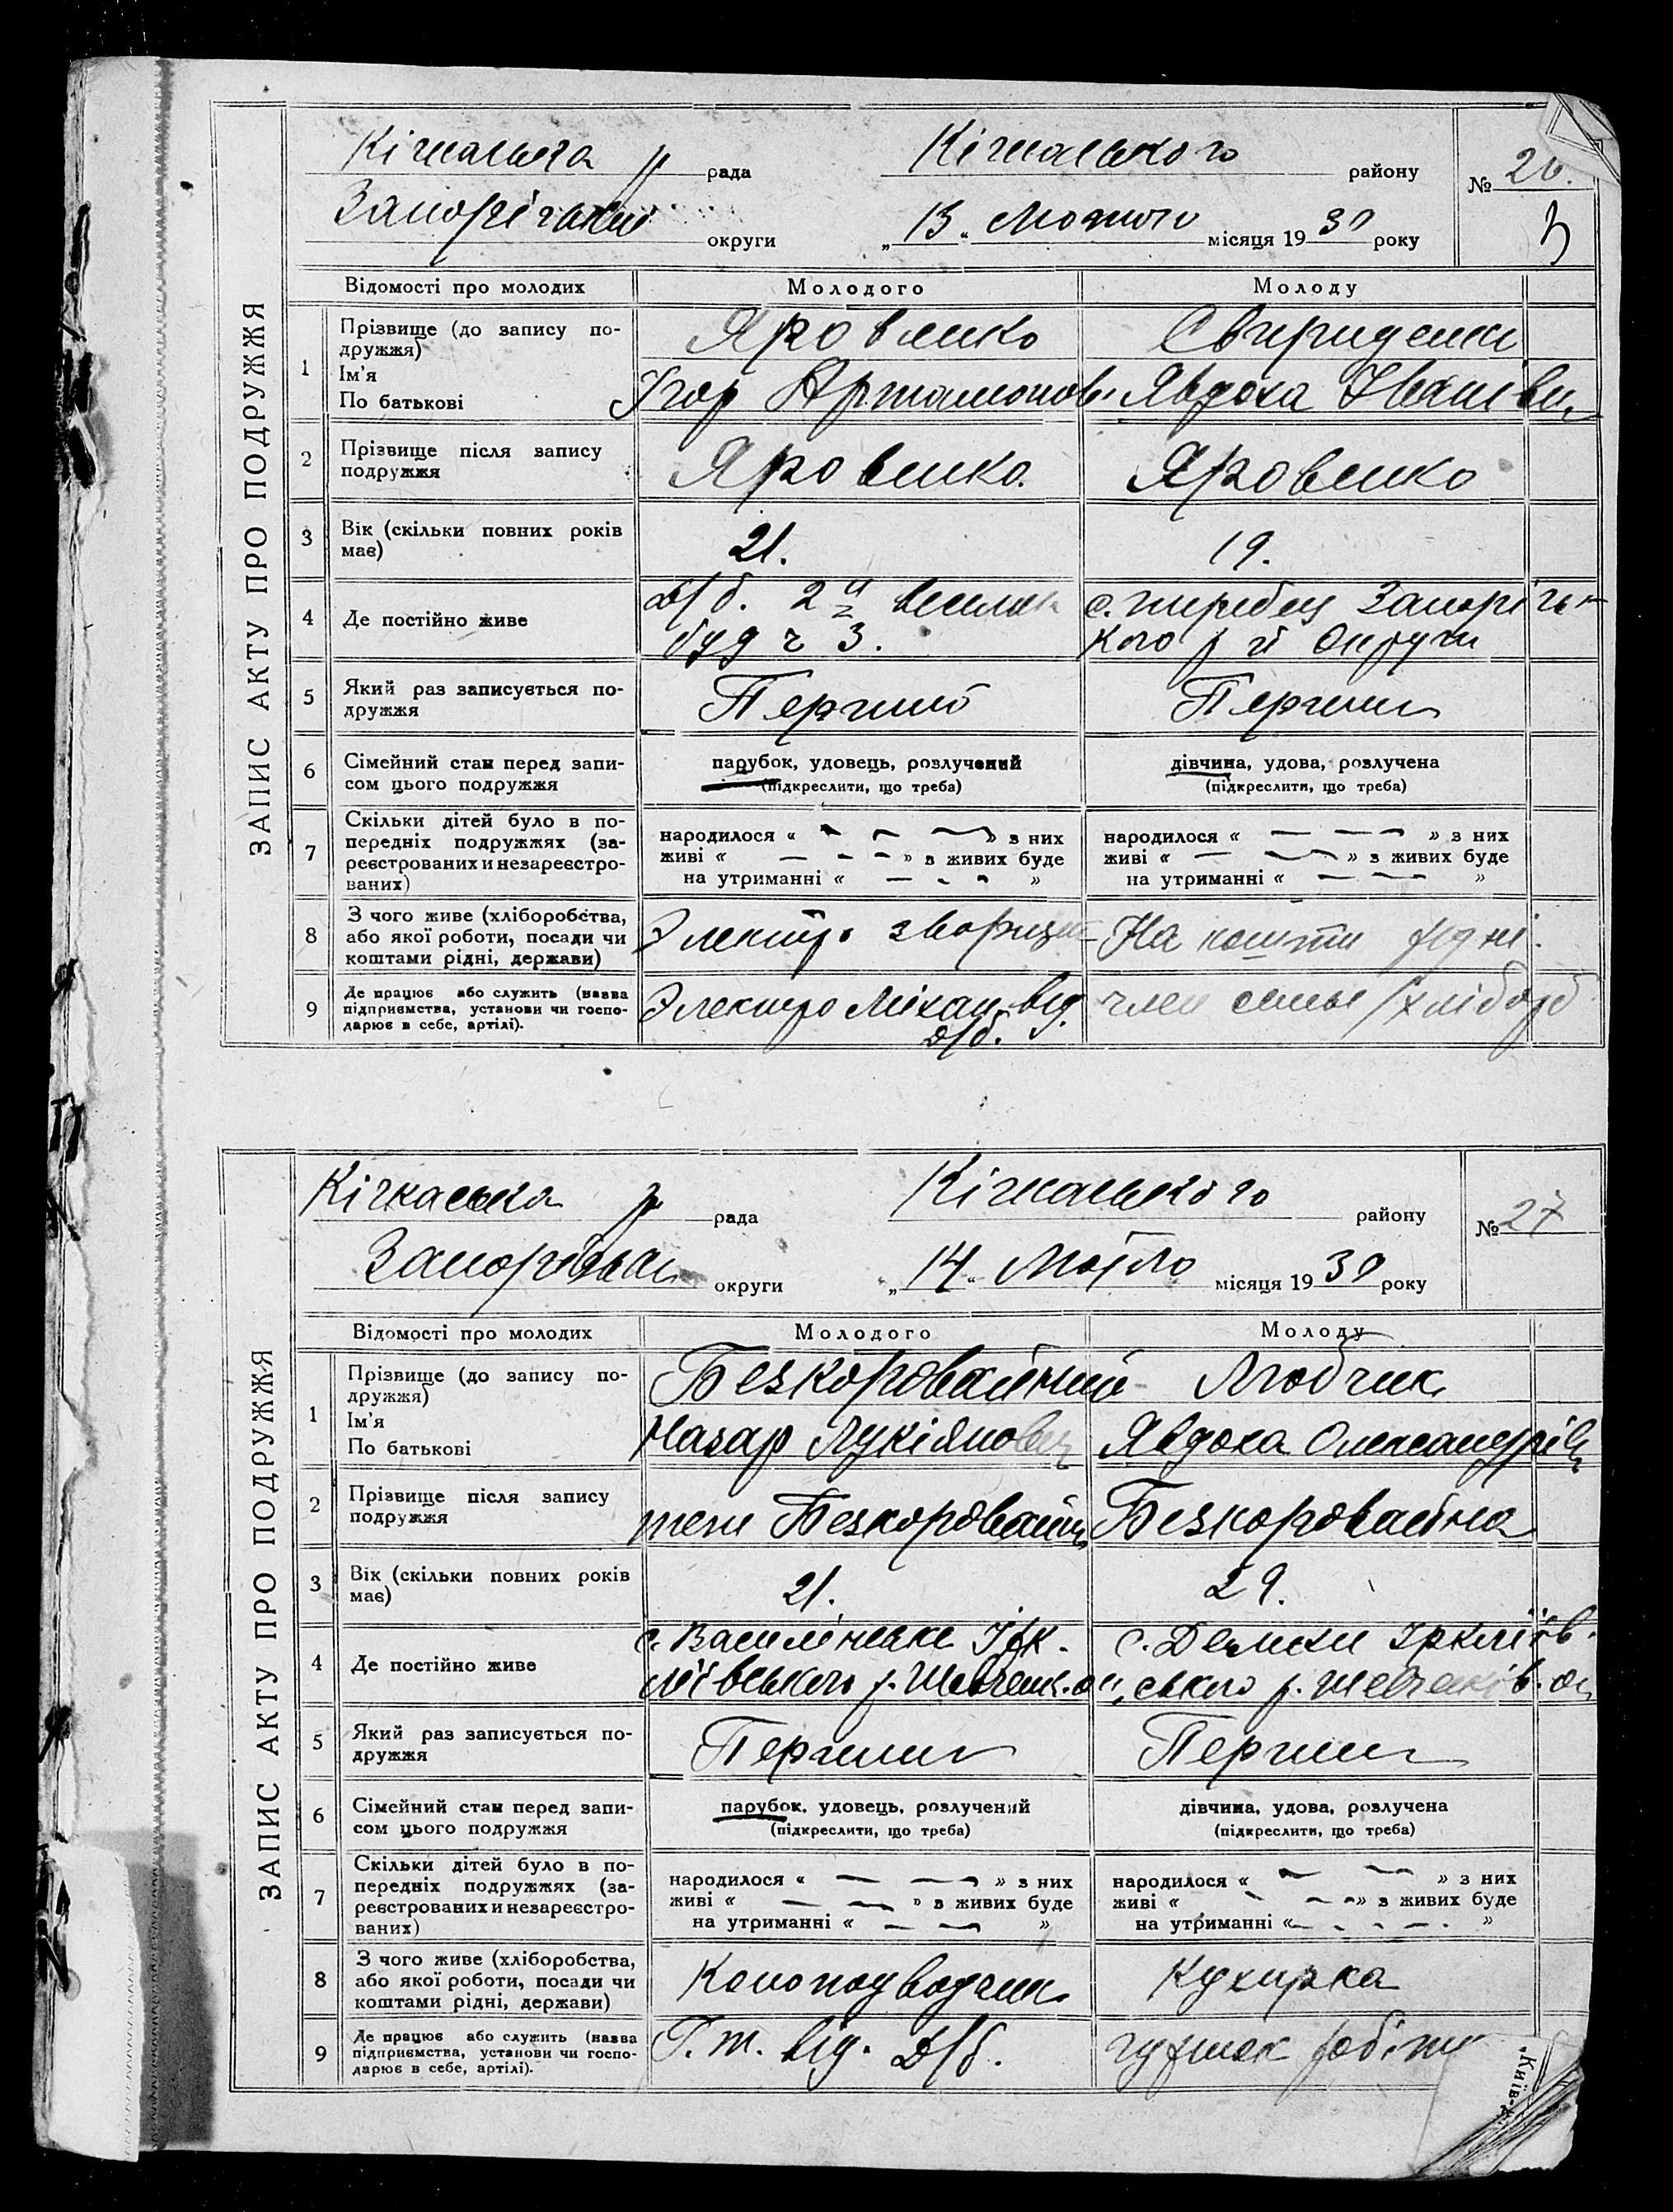 ЗАПИС АКТУ ПРО ПОДРУЖЖЯ
Кічкаська р рада Кічкаського району № 26.
округи „13“ Лютого місяця 1930 року
Відомості про молодих Молодого Молоду
1 Прізвище (до запису по-
дружжя) Яровенко Свириденко
Ім'я
По батькові Ігор Артамонов. Явдоха Іванівн
2 Прізвище після запису
подружжя Яровенко. Яровенко
3 Вік (скільки повних років
має) 21. 19.
4 Де постійно живе Д/б. 2й
буд ч 3. с. Жеребец Запорізь-
кого р й Округи
5 Який раз записується по-
дружжя Перший Перший
6 Сімейний стан перед запи-
сом цього подружжя
парубок, удовець, розлучений
(підкреслити, що треба)
дівчина, удова, розлучена
(підкреслити, що треба)
7 Скільки дітей було в по-
передніх подружжях (за-
реєстрованих и незареєстро-
ваних)
народилося « » з них
живі « » з живих буде
на утриманні « »
народилося « » з них
живі « » з живих буде
на утриманні « »
8 З чого живе (хліборобства,
або якої роботи, посади чи
коштами рідні, держави)
Электро На кошти рідні.
9 Де працює або служить (назва
підприємства, установи чи госпо-
дарює в себе, артілі).
Электро Міхан. від.
Д/б. член семьи /хлібороб
ЗАПИС АКТУ ПРО ПОДРУЖЖЯ
Кічкаська р рада Кічкаського району № 27
Запорізька округи „14“ місяця 1930 року
Відомості про молодих Молодого Молоду
1 Прізвище (до запису по-
дружжя) Безкоровайний Любчик
Ім'я
По батькові Назар Лукіянович Явдоха Олександрів
2 Прізвище після запису
подружжя теж Безкоровайн Безкоровайна
3 Вік (скільки повних років
має) 21. 29.
4 Де постійно живе с. Василінське Ірк-
ліївського р. Шевченк. ок. с. Демки Іркліїв-
ського р. Шевченків. ок
5 Який раз записується по-
дружжя Перший Перший
6 Сімейний стан перед запи-
сом цього подружжя
парубок, удовець, розлучений
(підкреслити, що треба)
дівчина, удова, розлучена
(підкреслити, що треба)
7 Скільки дітей було в по-
передніх подружжях (за-
реєстрованих и незареєстро-
ваних)
народилося « » з них
живі « » з живих буде
на утриманні « »
народилося « » з них
живі « » з живих буде
на утриманні « »
8 З чого живе (хліборобства,
або якої роботи, посади чи
коштами рідні, держави)
Коноподводчик Кухарка
9 Де працює або служить (назва
підприємства, установи чи госпо-
дарює в себе, артілі).
Г. т. від. Д/б.
„Київ-